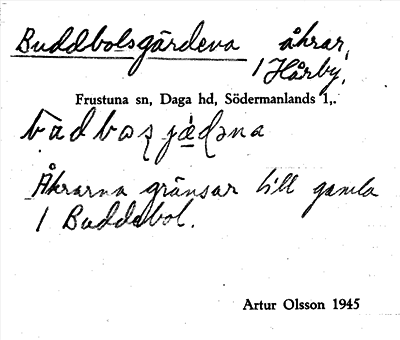 Buddbolsgärdena åkrar,
/ Hårby,
Frustuna sn, Daga hd, Södermanlands l,.
Åkrarna gränsar till gamla
/ Buddebol.
Artur Olsson 1945